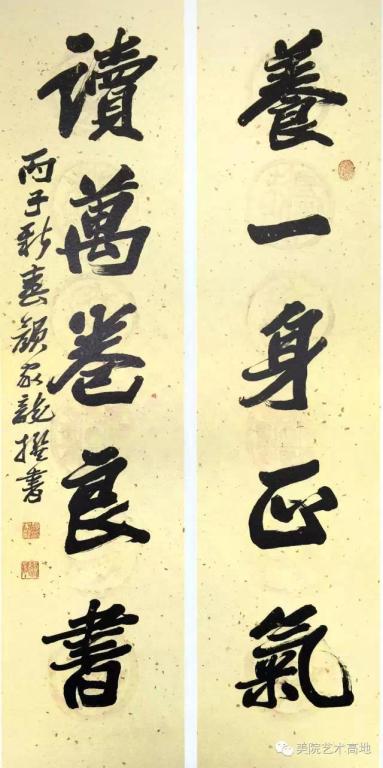 養一身正氣
讀萬卷良書
丙子新春顏家龍撰書
美院艺术高地